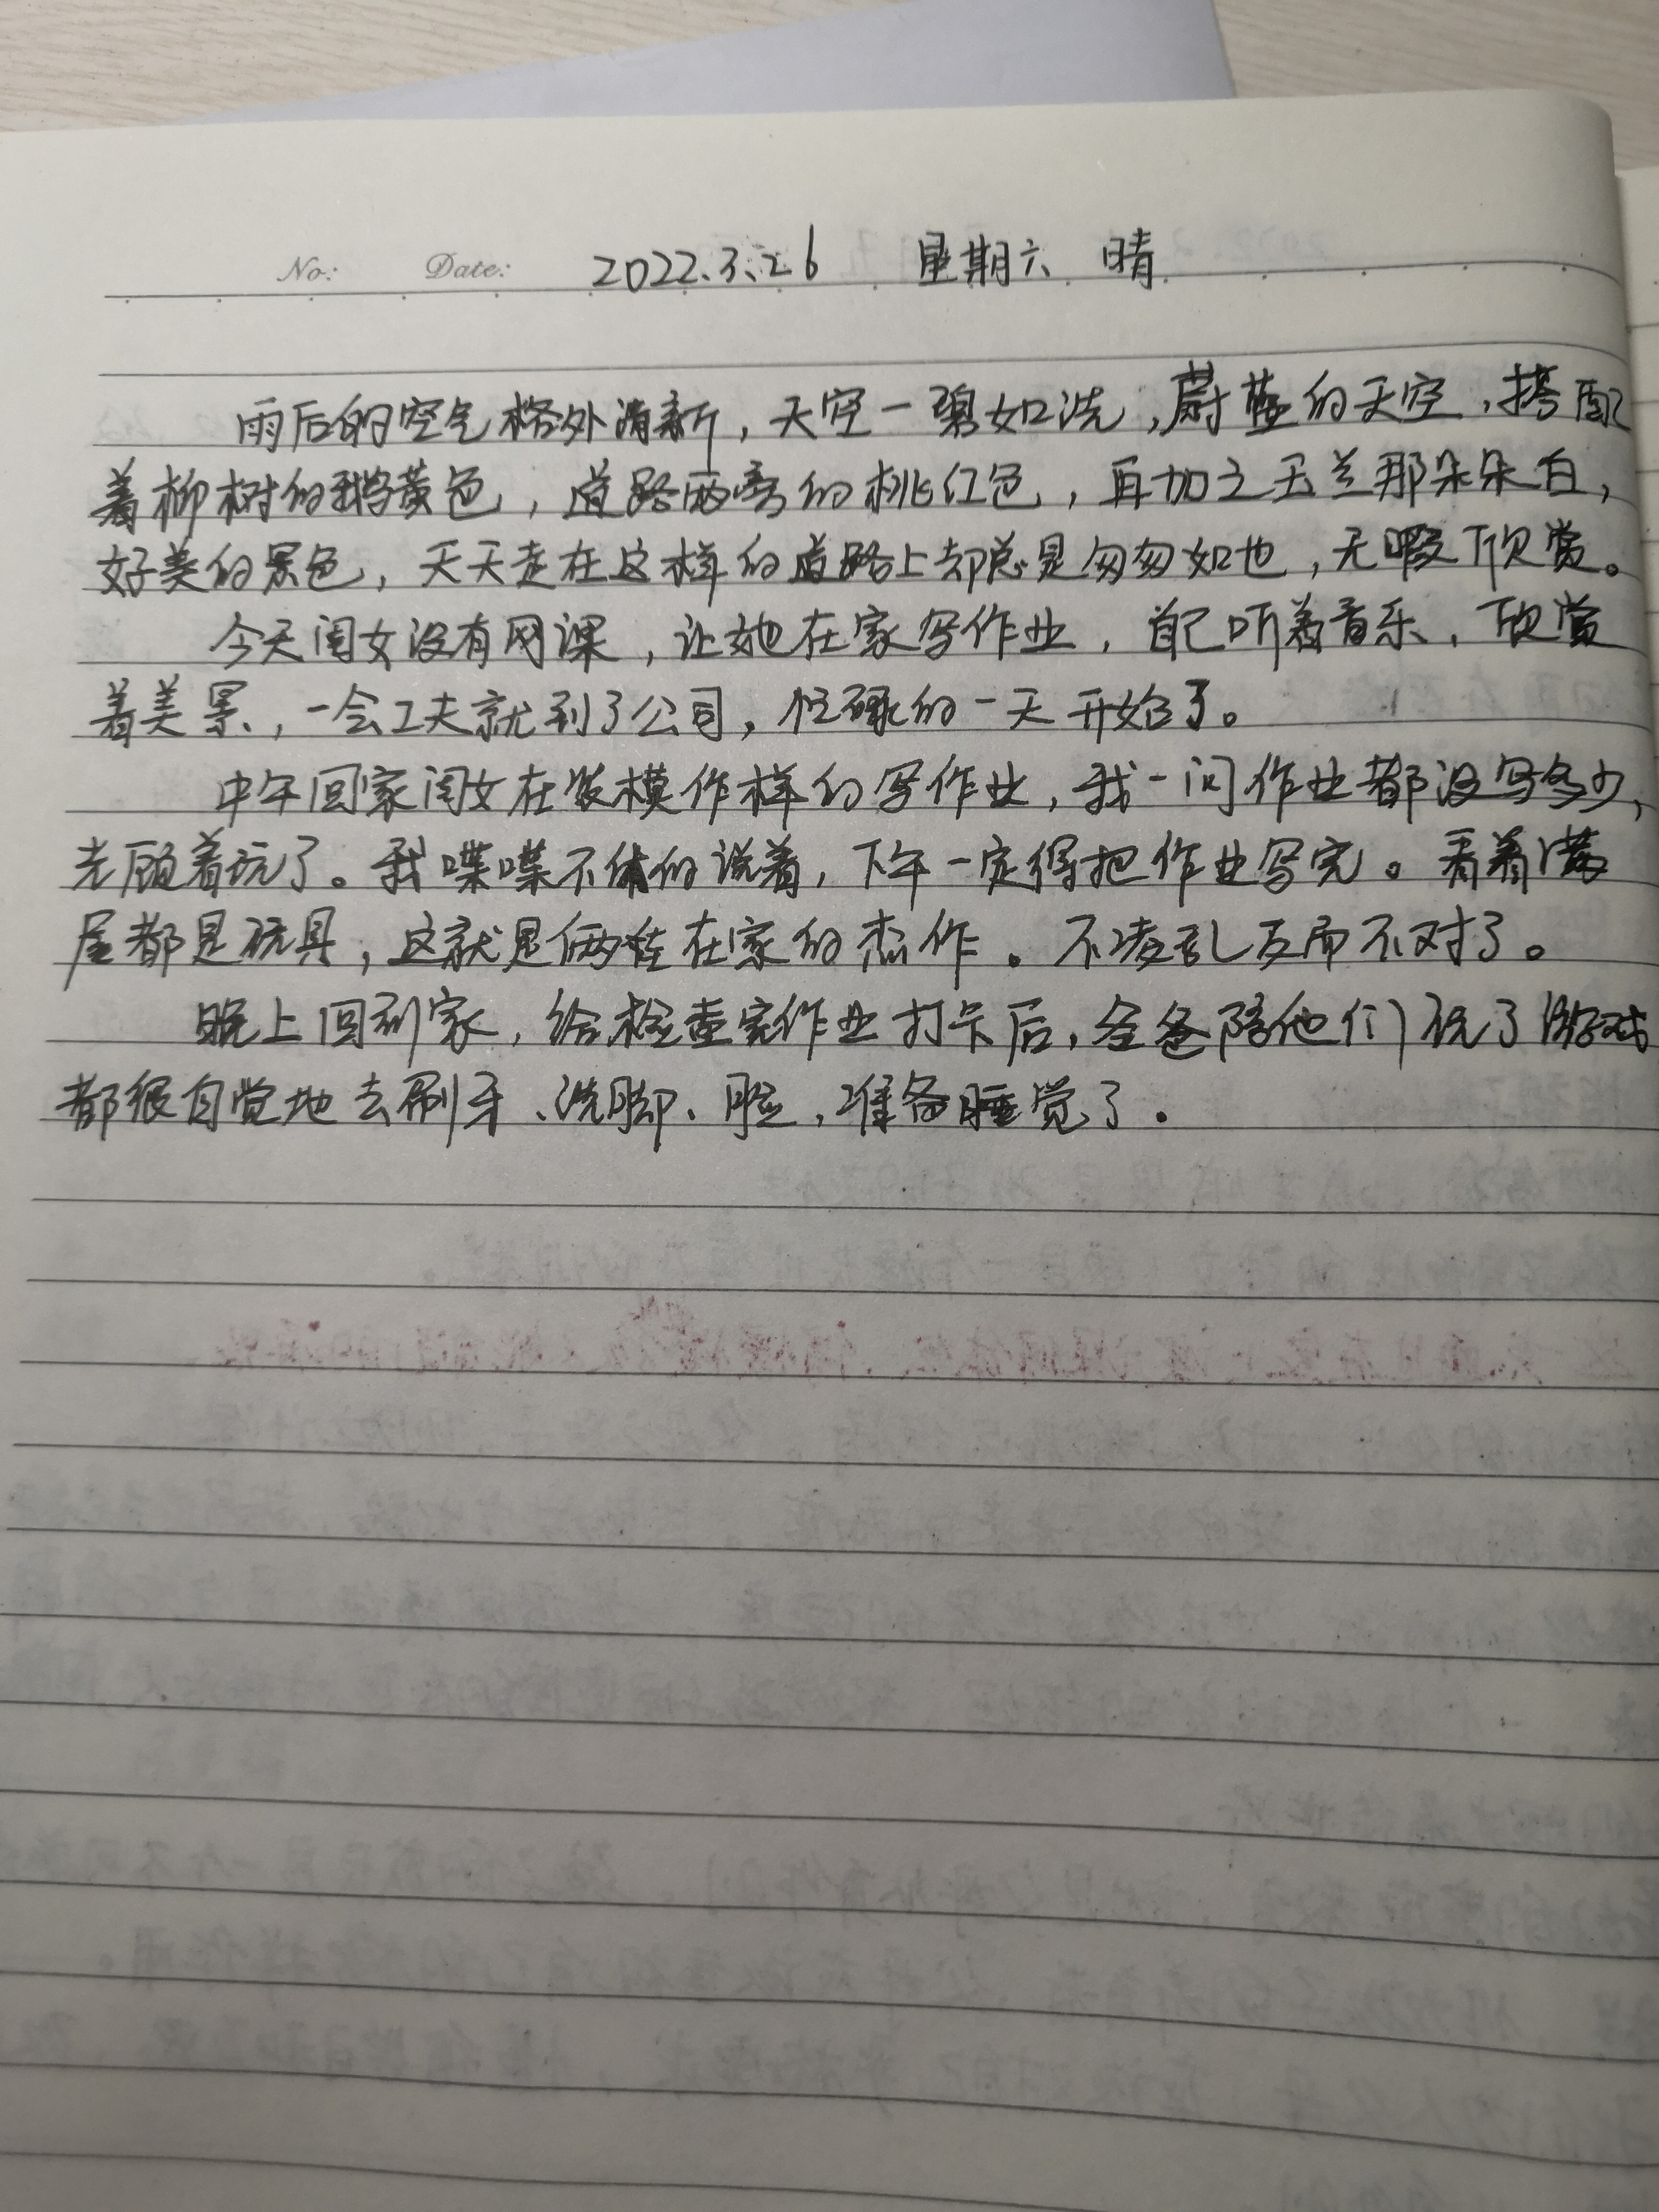 No: Date: 2022.3.26 星期六 晴
雨后的空气格外清新，天空一碧如洗，蔚蓝的天空，搭配
着柳树的鹅黄色，道路两旁的桃红色，再加之玉兰那朵朵白，
好美的景色，天天走在这样的道路上却总是匆匆如也，无暇欣赏。
今天闺女没有网课，让她在家写作业，自己听着音乐，欣赏
着美景，一会工夫就到了公司，忙碌的一天开始了。
中午回家闺女在装模作样的写作业，我一问作业都没写多少，
光顾着玩了。我喋喋不休的说着，下午一定得把作业写完。看着满
屋都是玩具，这就是俩娃在家的杰作。不凌乱反而不对了。
晚上回到家，给检查完作业打卡后，全爸陪他们玩了游戏
都很自觉地去刷牙、洗脚、脸，准备睡觉了。